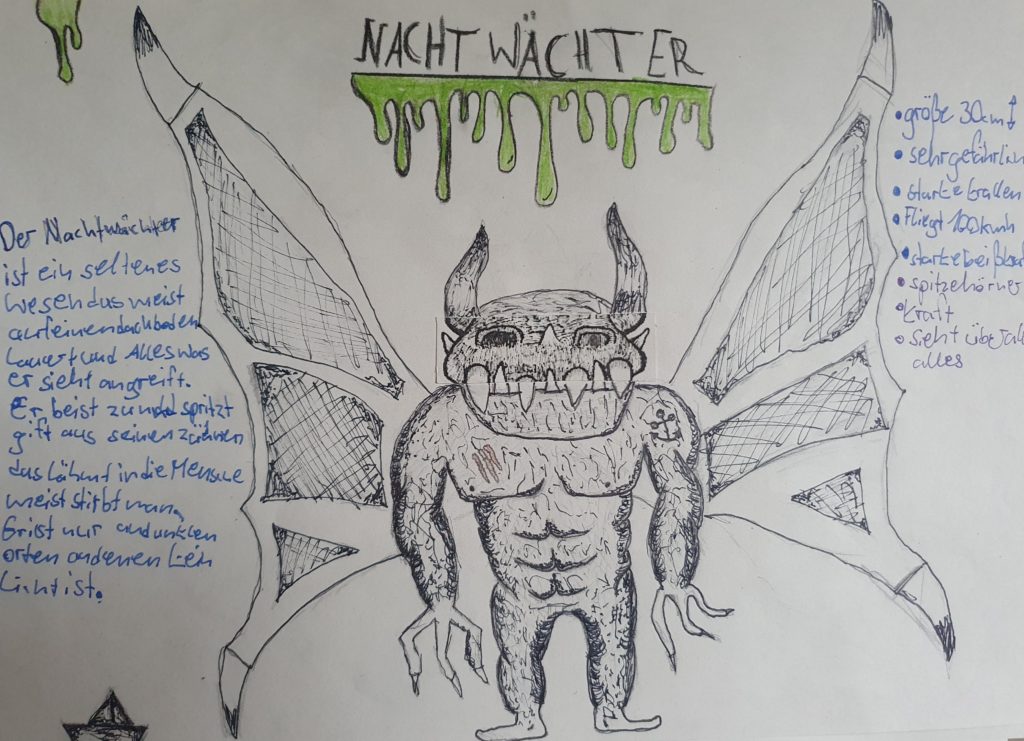 NACHTWÄCHTER
Der Nachtwächter
ist ein seltenes
wesen das meist
auf einen dachboden
Lauert und Alles was
er sieht angreift.
Er beist zu und spritzt
gift aus seinen zähnen
das Lähmt in die Mensche
meist stirbt man.
Er ist nur an dunklen
orten an denen kein
Licht ist.
• größe 30cm
• sehr gefährlich
• starke krallen
• Fliegt 120kmh
• starke beißkraft
• spitze hörner
• kraft
• sieht überall
alles